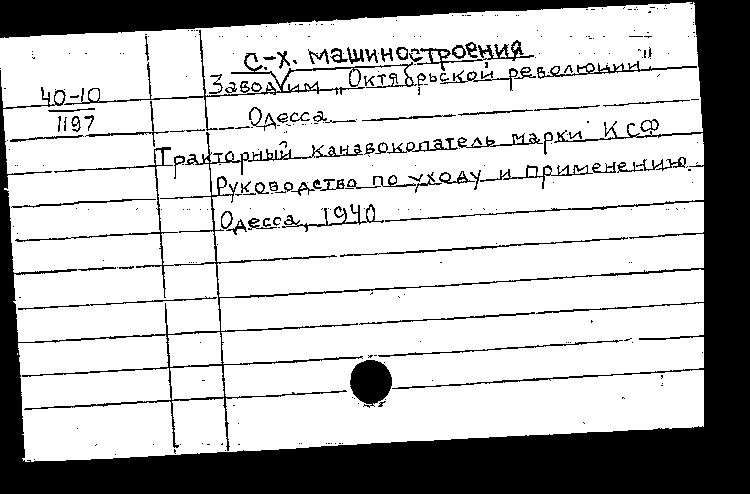 с.-х. машиностроения
Завод им „Октябрьской революции".
40-10
1197
Одесса
Тракторный канавокопатель марки КСФ
Руководство по уходу и применению.
Одесса, 1940